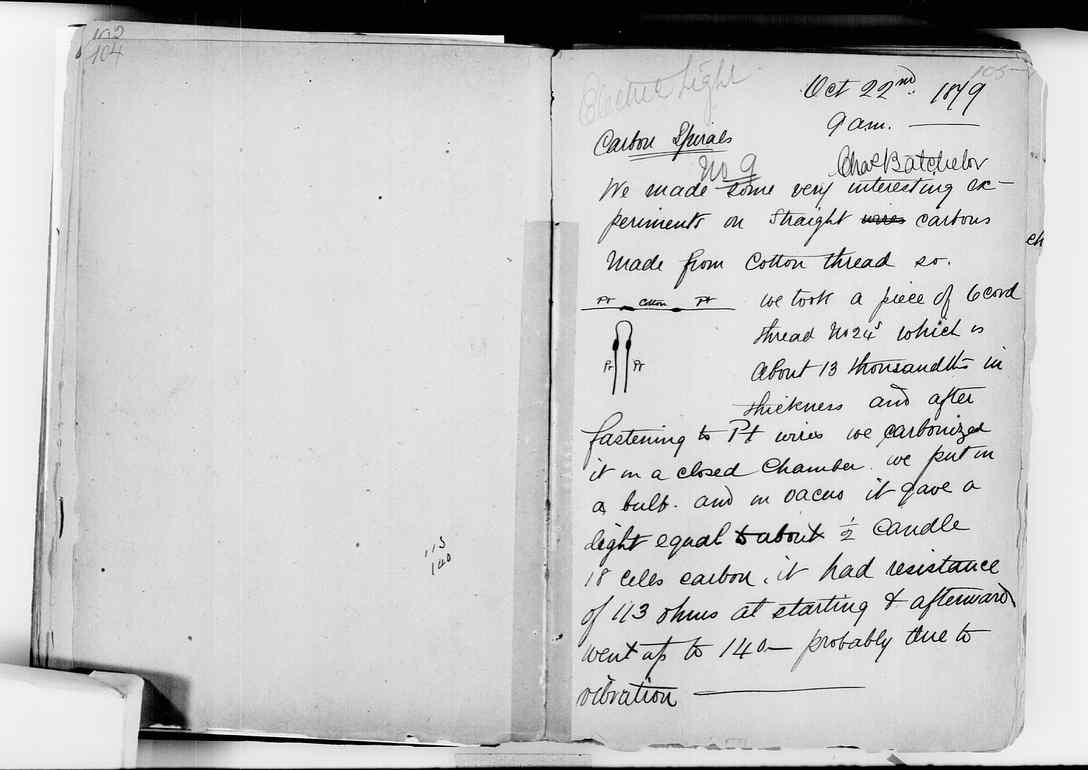 102
104
113
140
105
Electric Light
Oct 22nd. 1879
9 am.
Carbon Spirals
No 9
Chas Batchelor
We made some very interesting ex-
periments on Straight wires carbons
Made from Cotton thread so.
Pt Cotton Pt
we took a piece of 6 cord
thread No 24s which is
Pt Pt
About 13 thousandths in
thickness and after
fastening to Pt wires we carbonized
it in a closed Chamber. we put in
a bulb. and in vacuo it gave a
light equal to about 1/2 candle
18 cells carbon. it had resistance
of 113 ohms at starting & afterward
went up to 140— probably due to
vibration
ch